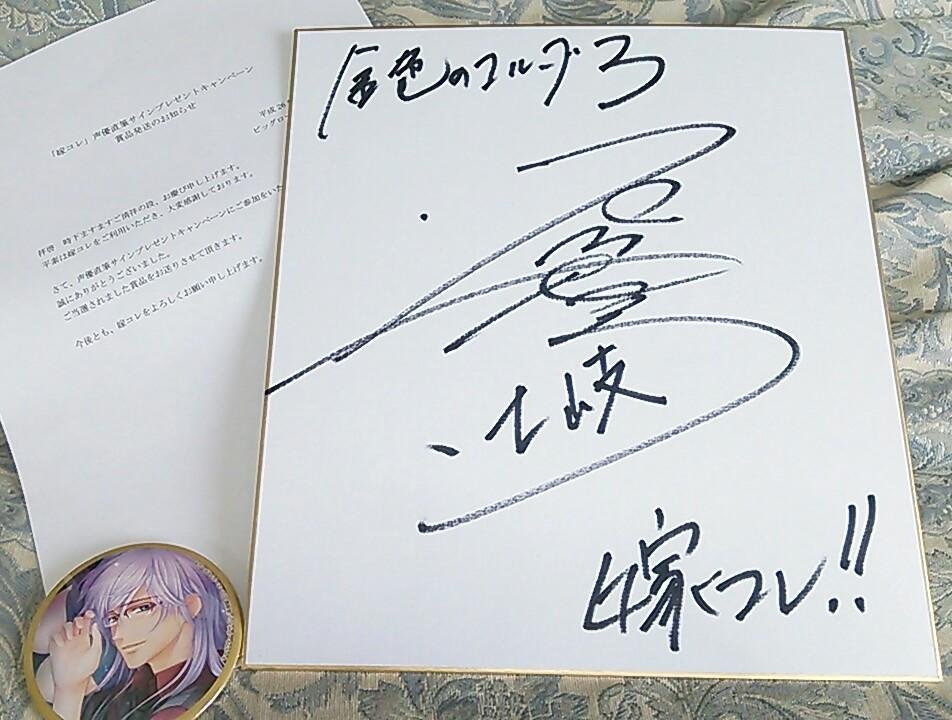 「嫁コレ」声優直筆サインプレゼントキャンペーン
賞品発送のお知らせ
平成26
ビッグロ
拝啓 時下ますますご清祥の段、お慶び申し上げます。
平素は嫁コレをご利用いただき、大変感謝しております。
さて、声優直筆サインプレゼントキャンペーンにご参加をいた
誠にありがとうございました。
ご当選されました賞品をお送りさせて頂きます。
今後とも、嫁コレをよろしくお願い申し上げます。
金色のコルダ3
土岐
嫁コレ!!